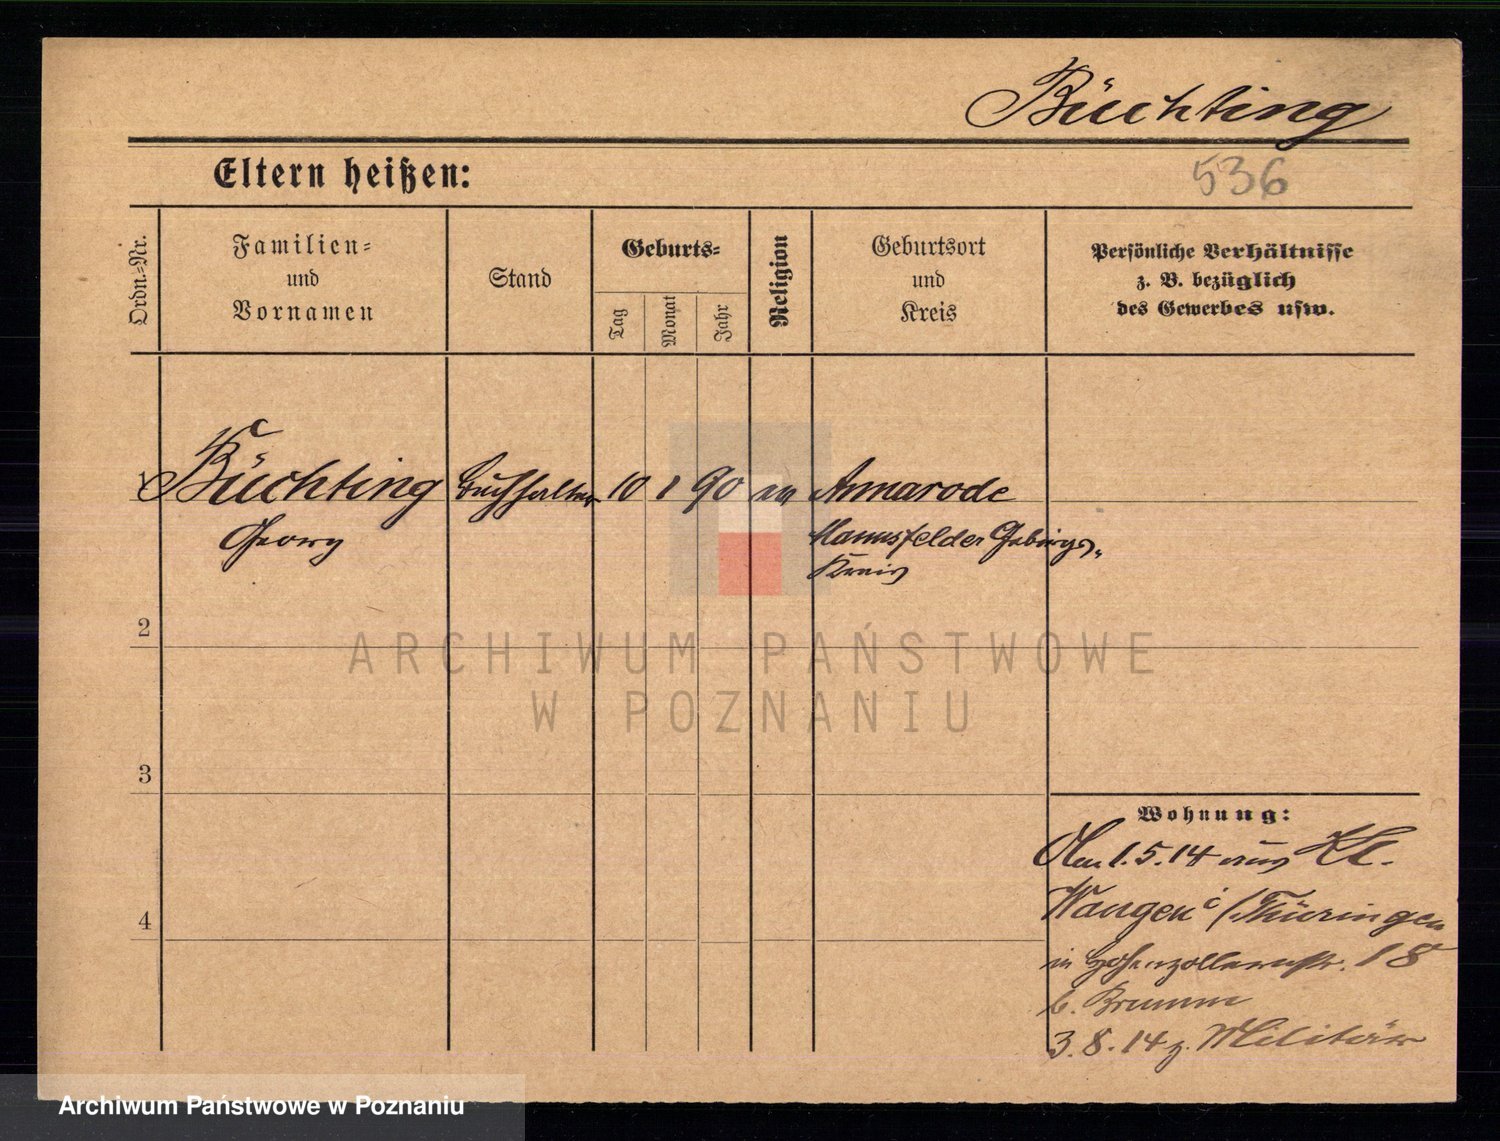 Büchting
Eltern heißen:
536
Ordn.-Nr.
Familien-
und
Vornamen
Stand
Geburts-
Tag
Monat
Jahr
Religion
Geburtsort
und
Kreis
Persönliche Verhältnisse
z. B. bezüglich
des Gewerbes usw.
1 Büchting Buchhalter 10 1 90 ev Annarode
Georg
Mannsfelder Gebirgs-
Kreis
2
3
4
ARCHIWUM PAŃSTWOWE
W POZNANIU
Wohnung:
1.5.14 aus Kl.
Wangen i/Thüringen
in Hohenzollernstr. 18
b. Brumme
3.8.14 z. Militär
Archiwum Państwowe w Poznaniu